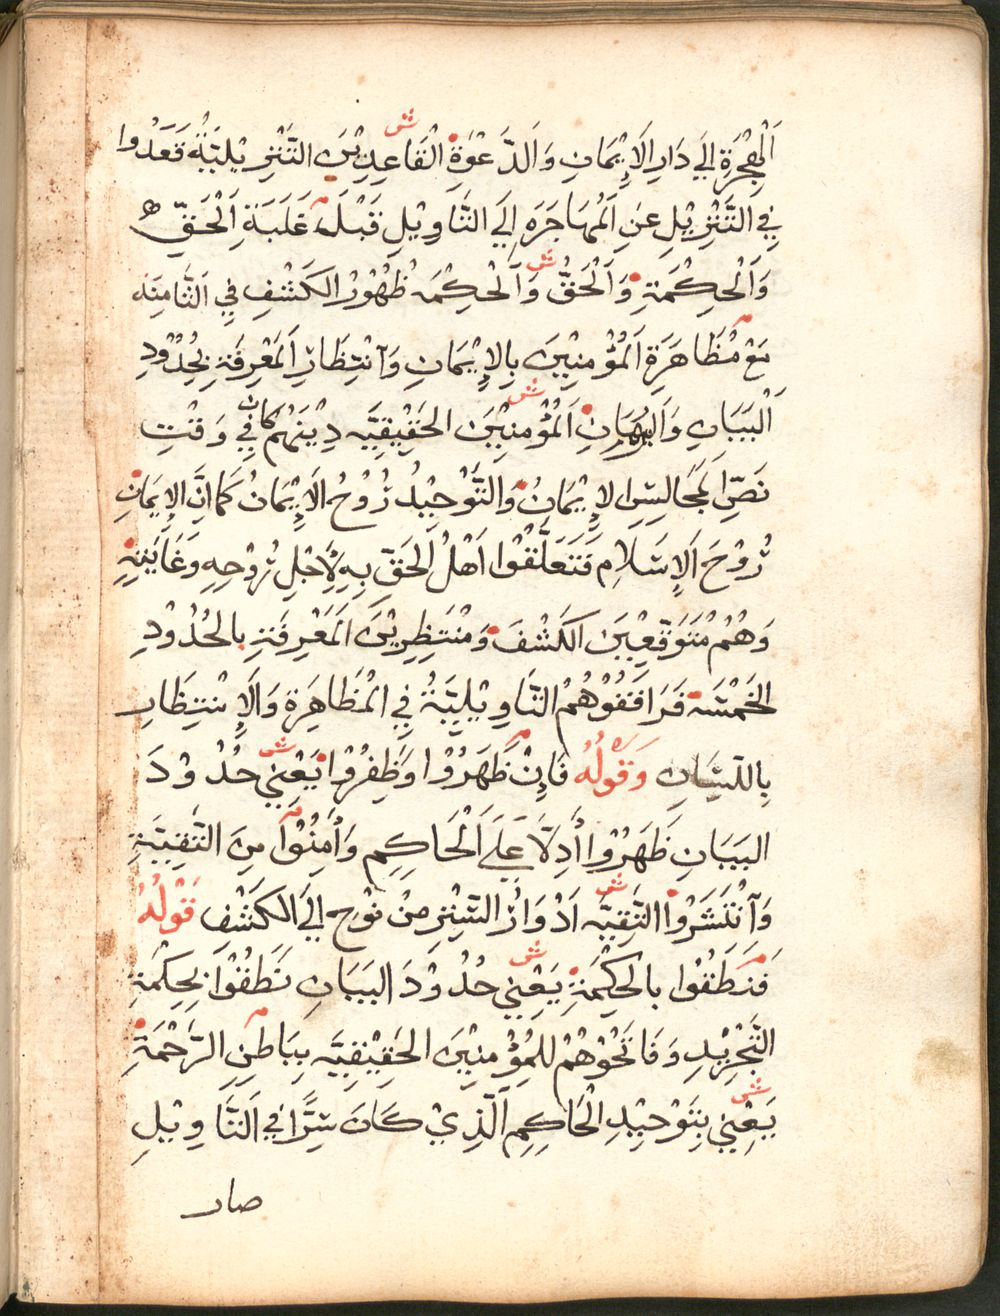 اَلْهِجْرَةِ اِلَي دَارِ الاِيْمَانِ وَالدَّعْوَةِ ش الْقَاعِدِيْنَ التَّنْزِيْلِيَّةُ قَعَدُوا
فِي التَّنْزِيْلِ عَنِ اَلْمُهَاجَرَه اِلَي التَّاوِيْلِ قَبْلَ م غَلَبَةِ اَلْحَقِّ
وَاَلْحِكْمَةِ وَاَلْحَقُّ ش وَاَلْحِكْمَه ظُهُوْرُ الكَشْفِ فِي الثَّامِنَه
م مَعْ مُظَاهَرَةِ اَلمُؤْمِنِيْنَ بِالاِيْمَانِ وَاَنْتِظَارِ اَلمَعْرِفَةِ بِحُدُوْدِ
اَلْبَيَانِ وَاَلبُرْهَانِ ش اَلمُؤْمِنِيْنَ الحَقِيْقِيَّه دِيْنَهُم كَانَ فِي وَقْتِ
نَصِّ اَلمَجَالِسِ الاِيْمَانُ وَالتَّوْحِيْدُ رُوْحُ الاِيْمَانُ كَمَا اِنَّ الاِيْمَانِ
رُوْحَ اَلاِسَلامِ فَتَعَلَّقُوْا اَهْلُ اَلحَقِّ بِهِ لاَِجْلِ رُوْحِهِ وَغَايَتِهِ
وَهُمْ مُتَوَقِّعِيْنَ الكَشْفَ وَمُنْتَظِرِيْنَ اَلمَعْرِفَةِ بِالحُدُوْدِ
الخَمْسَه فَرَافَقُوْهُمْ التَّاوِيْلِيَّةُ فِي الْمُظَاهِرَةِ وَالاِنْتِظَارِ
بِاللِّسَانِ وَقَوْلُهُ فَاِنْ ظَهَرُوْا وَظَفِرُوْا ش يَعْنِي حُدُوْدَ
البَيَانِ ظَهَرُوْا اَدِلاَّ عَلَي اَلْحَاكِمِ وَاُمِنُوْا م مِنَ التَّقِيَّةِ
وَاَنْتَشَرُوْا ش التَّقِيَّه اَدْوَارُ السَّتْرِ مِنْ نُوْحِ اِلَي الكَشْفِ قَوْلُهُ
فَنَطَقُوْا بِالحِكْمَةِ ش يَعْنِي حُدُوْدَ البَيَانِ نَطَقُوْا بِحِكْمَةِ
التَّجْرِيْدِ وَفَاتَحُوْهُمْ لِلمُؤْمِنِيْنَ الحَقِيْقِيَّه بِبَاطِنِ الرَّحْمَةِ
ش يَعْنِي بِتَوْحِيْدِ الْحَاكِمِ اَلَّذِيْ كَانَ سِرًّا فِي اَلتَّاوِيْلِ
صار